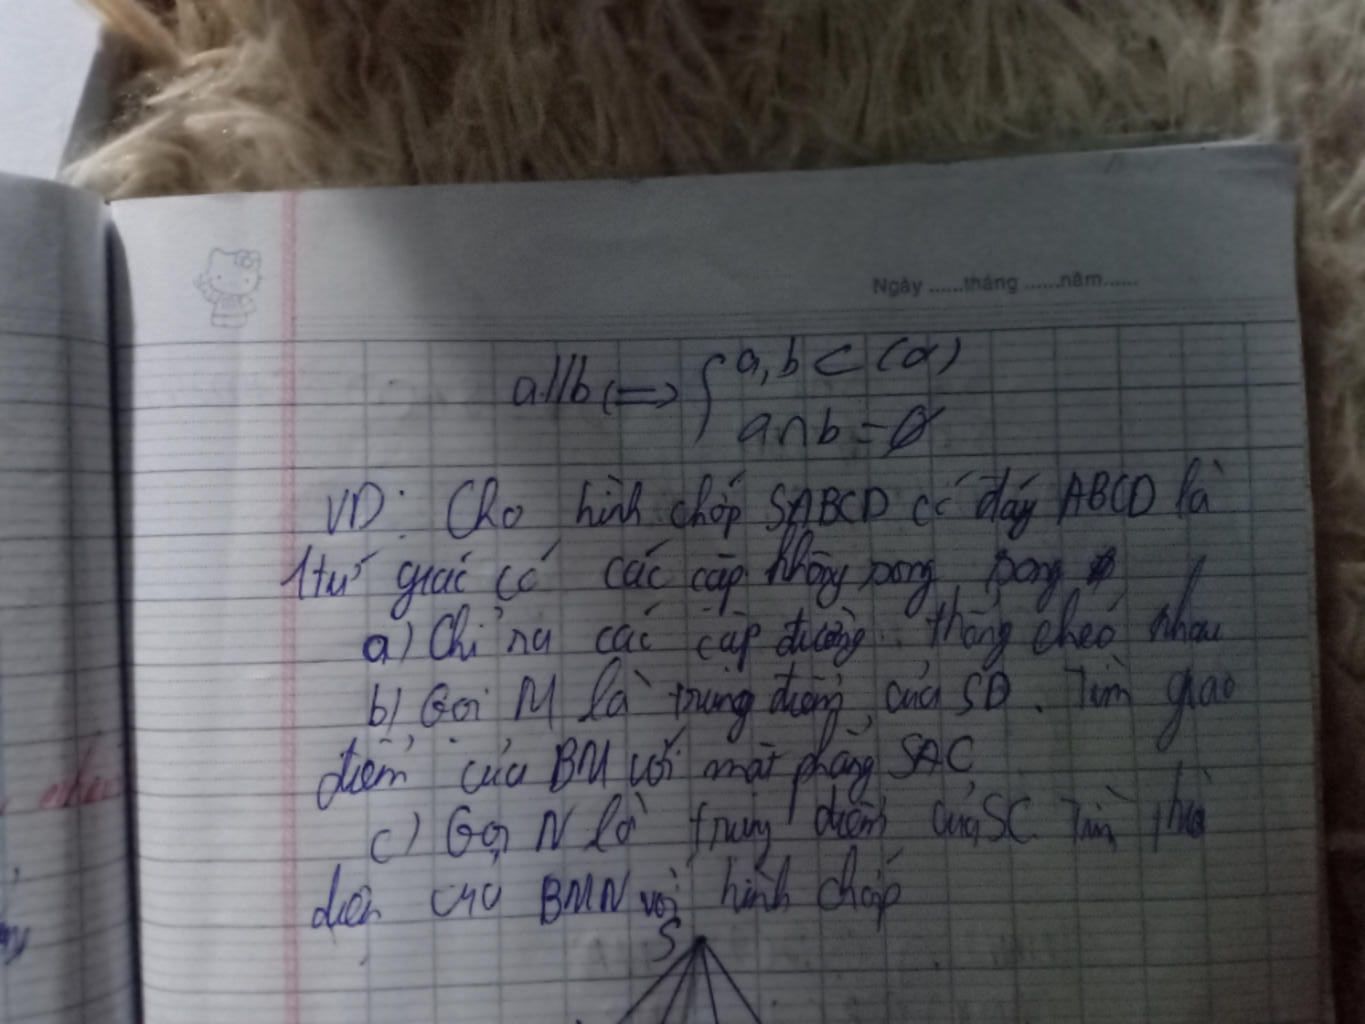 Ngày ......tháng ......năm......
a//b <=> { a,b ⊂ (α)
a∩b = ∅
VD: Cho hình chóp SABCD có đáy ABCD là
1 tứ giác có các cặp không song song
a) Chỉ ra các cặp đường thẳng chéo nhau
b) Gọi M là trung điểm của SD. Tìm giao
điểm của BM với mặt phẳng SAC
c) Gọi N là trung điểm của SC Tìm thiết
diện của BMN với hình chóp
S